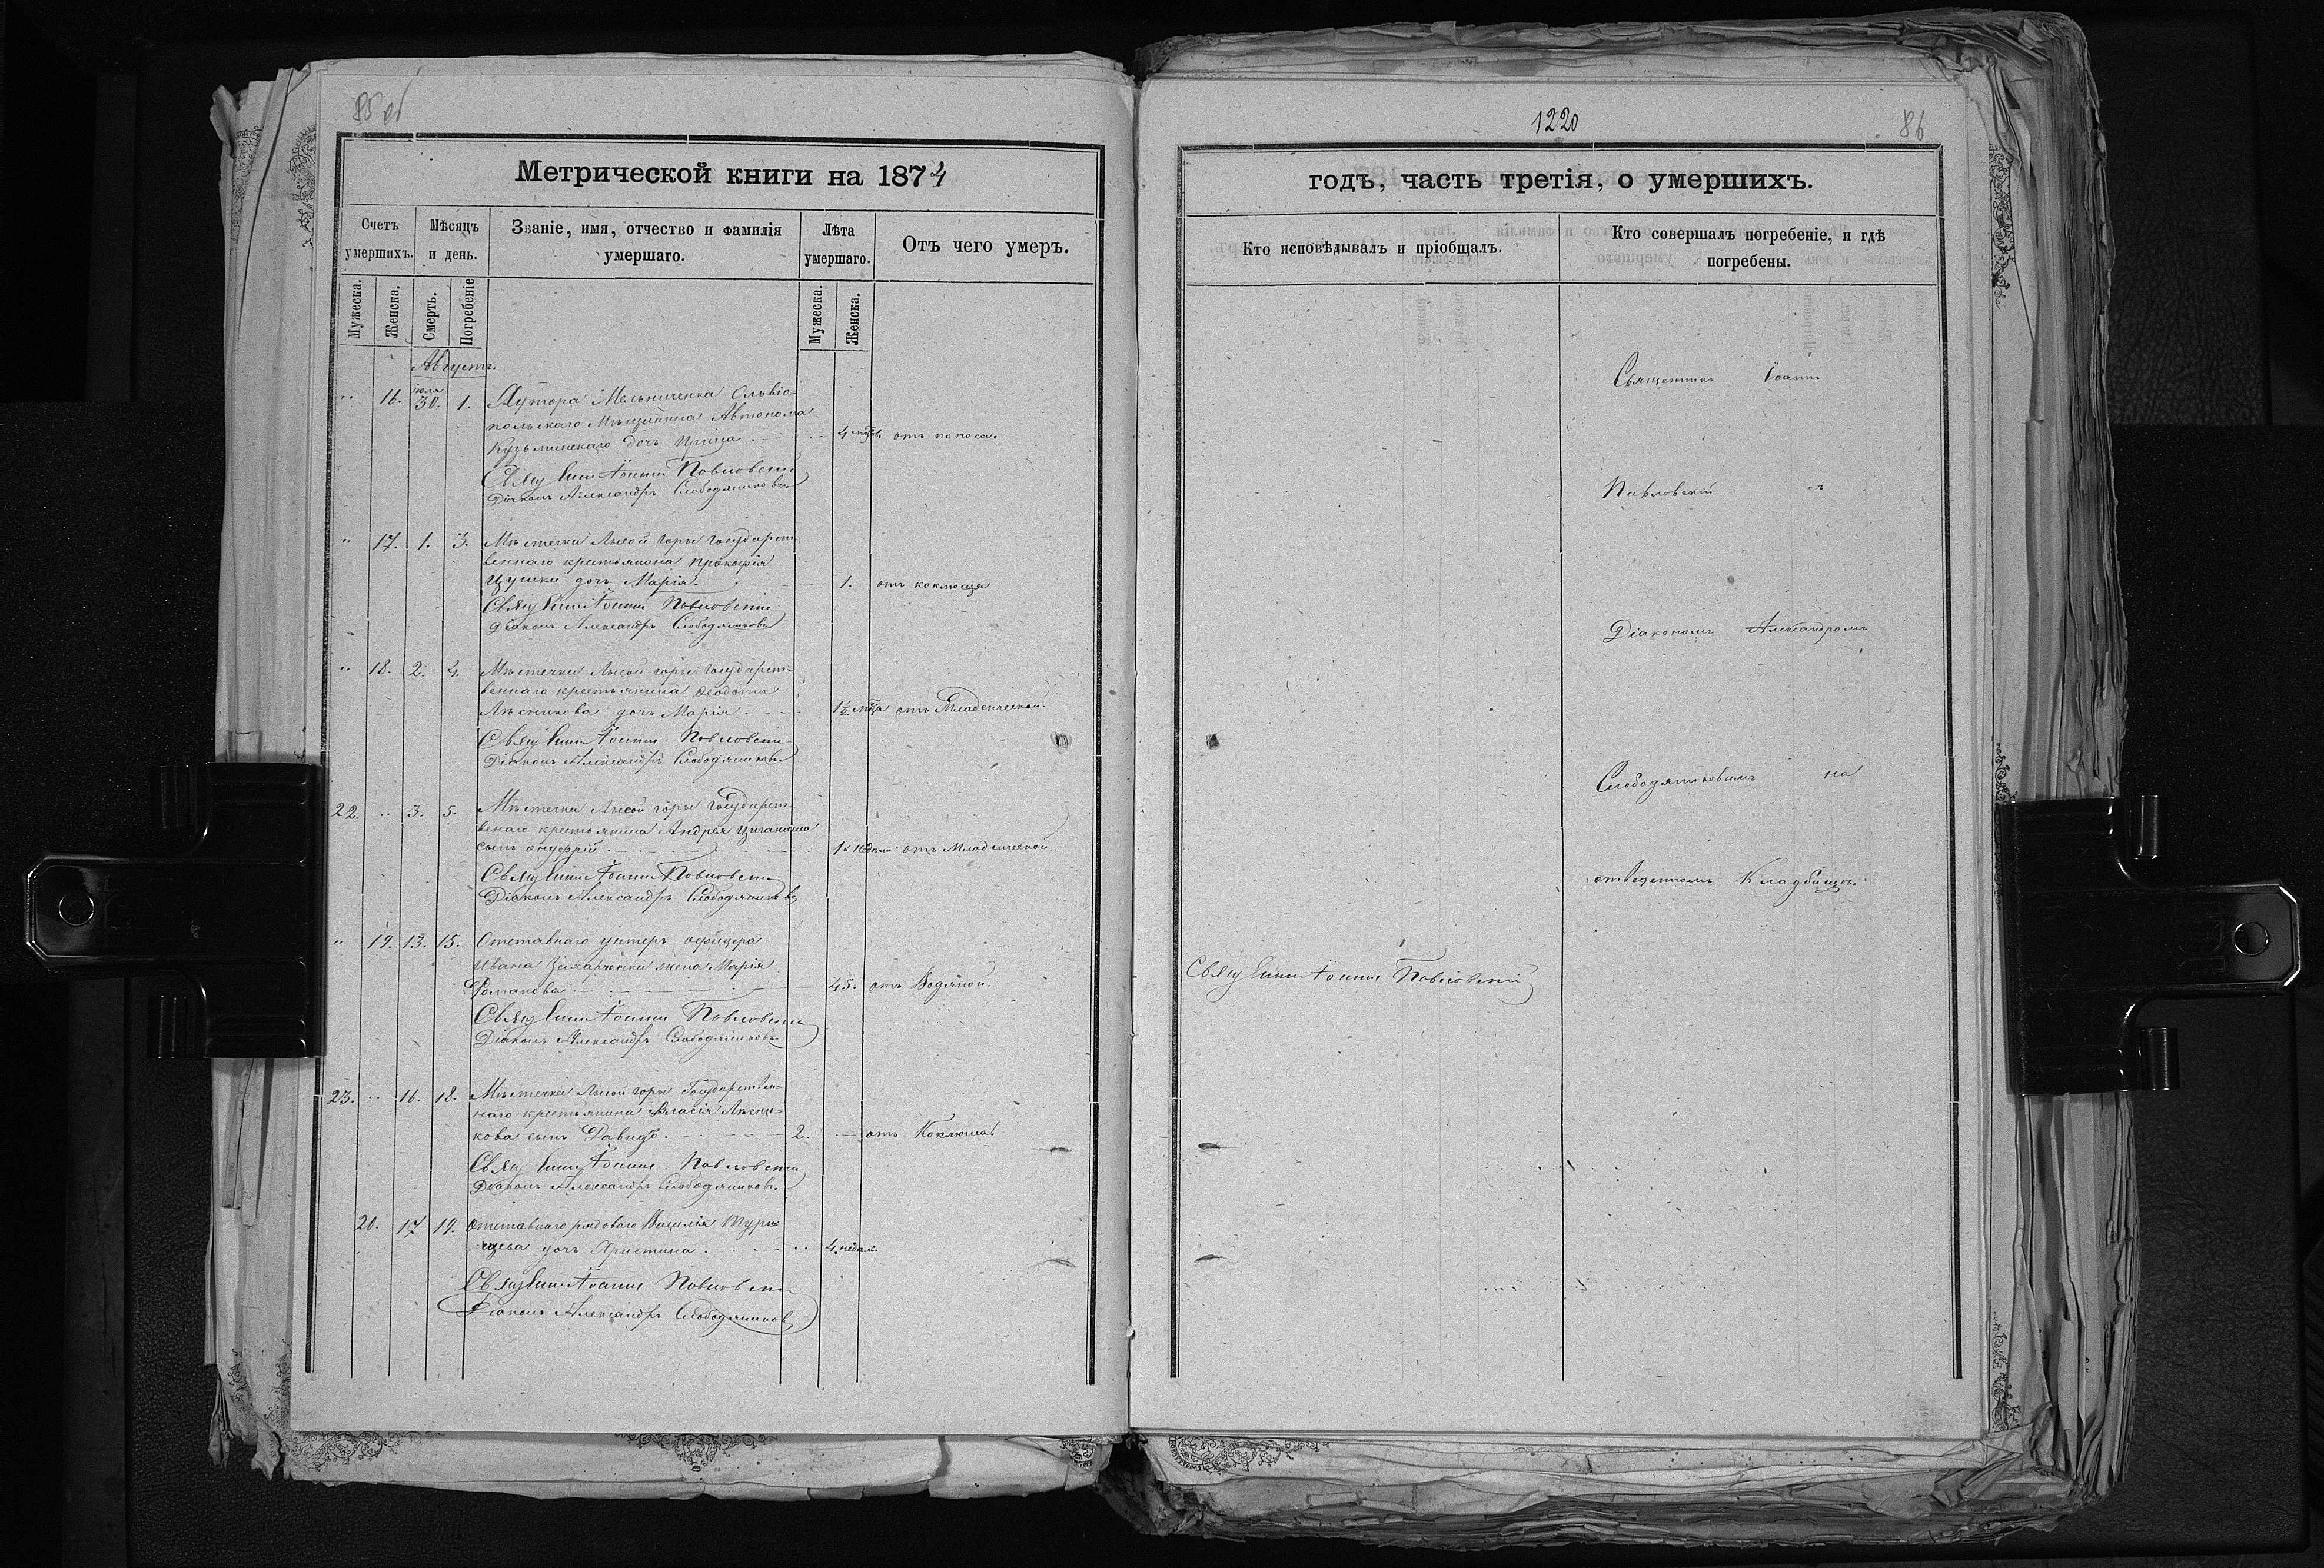 85 об
Метрической книги на 1874
Счетъ умершихъ.
Мѣсяцъ и день.
Званіе, имя, отчество и фамилія умершаго.
Лѣта умершаго.
Отъ чего умеръ.
Мужеска.
Женска.
Смерть.
Погребеніе
Мужеска.
Женска.
Августъ
" 16. июля 30. 1. Хутора Мельниченка Ольвіо-
польскаго Мѣщанина Автонома
Кузьминскаго дочь 4 мѣс. отъ поноса.
Священникъ Іоаннъ Павловскій
Діаконъ Александръ Слободяниковъ
" 17. 1. 3. Мѣстечка Лысой горы государст-
веннаго крестьянина Прокофія
дочь Марія 1. отъ коклюша
Священникъ Іоаннъ Павловскій
Діаконъ Александръ Слободяниковъ
" 18. 2. 4. Мѣстечка Лысой горы государст-
веннаго крестьянина Ѳеодота
Лѣсникова дочь Марія 1½ мѣца отъ Младенческой.
Священникъ Іоаннъ Павловскій
Діаконъ Александръ Слободяниковъ
22. " 3. 5. Мѣстечка Лысой горы государст-
венаго крестьянина Андрея
сынъ Онуфрій отъ Младенческой
Священникъ Іоаннъ Павловскій
Діаконъ Александръ Слободяниковъ
" 19. 13. 15. Отставнаго унтеръ офицера
Ивана жена Марія
Романова 45. отъ Водяной.
Священникъ Іоаннъ Павловскій
Діаконъ Александръ Слободяниковъ
23. " 16. 18. Мѣстечка Лысой горы Государствен-
наго крестьянина Власія Лѣсни-
кова сынъ Давидъ 2. отъ Коклюша.
Священникъ Іоаннъ Павловскій
Діаконъ Александръ Слободяниковъ
20. 17 19. Отставнаго рядоваго Василія
дочь Христина 4. недѣл.
Священникъ Іоаннъ Павловскій
Діаконъ Александръ Слободяниковъ
1220
86
годъ, часть третія, о умершихъ.
Кто исповѣдывалъ и пріобщалъ.
Кто совершалъ погребеніе, и гдѣ погребены.
Священникъ Іоаннъ
Павловскій съ
Діакономъ Александромъ
Слободяниковымъ на
отведенномъ Кладбищѣ.
Священникъ Іоаннъ Павловскій